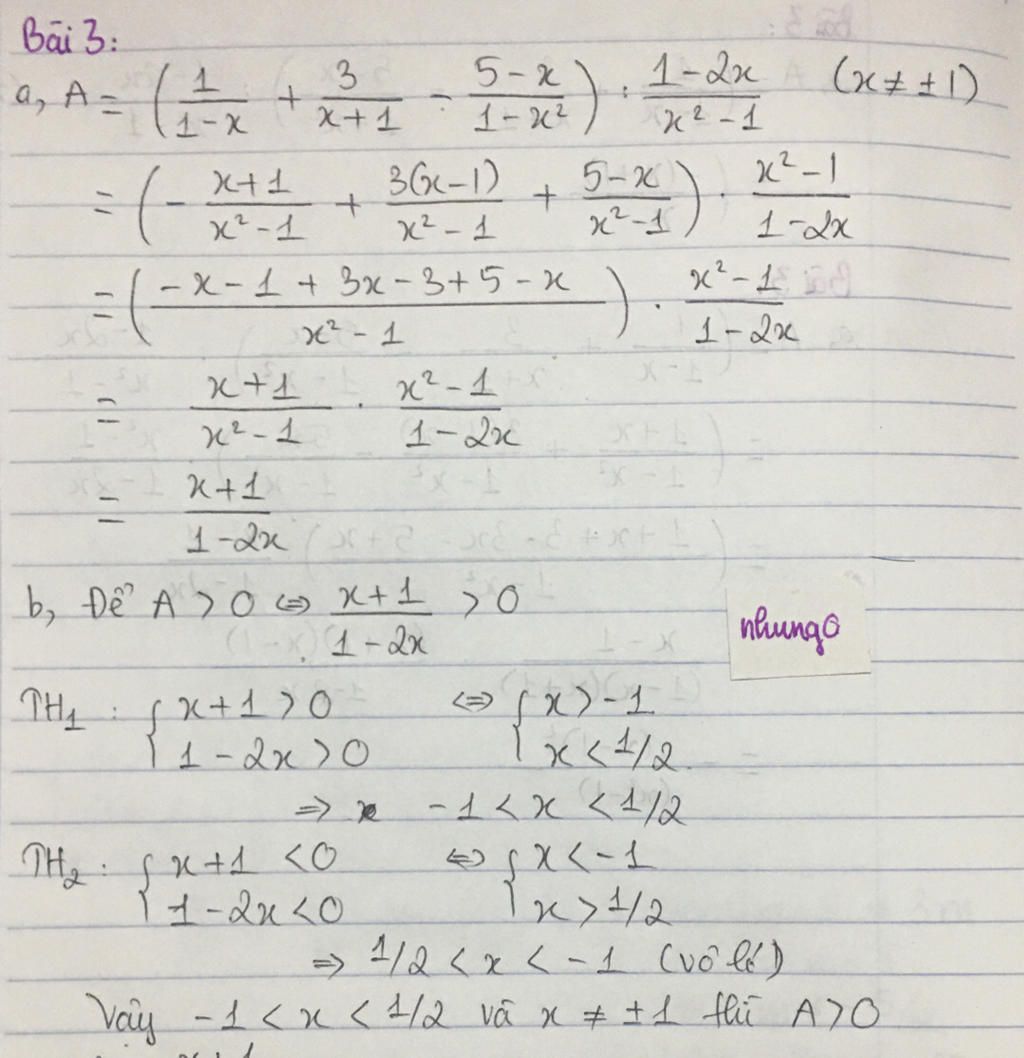 Bài 3:
a, A = (1/(1-x) + 3/(x+1) - (5-x)/(1-x²)) : (1-2x)/(x²-1) (x ≠ ±1)
= (- (x+1)/(x²-1) + 3(x-1)/(x²-1) + (5-x)/(x²-1)) · (x²-1)/(1-2x)
= ((-x-1+3x-3+5-x)/(x²-1)) · (x²-1)/(1-2x)
= (x+1)/(x²-1) · (x²-1)/(1-2x)
= (x+1)/(1-2x)
b, Để A > 0 ⇔ (x+1)/(1-2x) > 0
nhung0
TH₁ : { x+1 > 0 ⇔ { x > -1
1-2x > 0 x < 1/2
⇒ x -1 < x < 1/2
TH₂ : { x+1 < 0 ⇔ { x < -1
1-2x < 0 x > 1/2
⇒ 1/2 < x < -1 (vô lí)
Vậy -1 < x < 1/2 và x ≠ ±1 thì A > 0